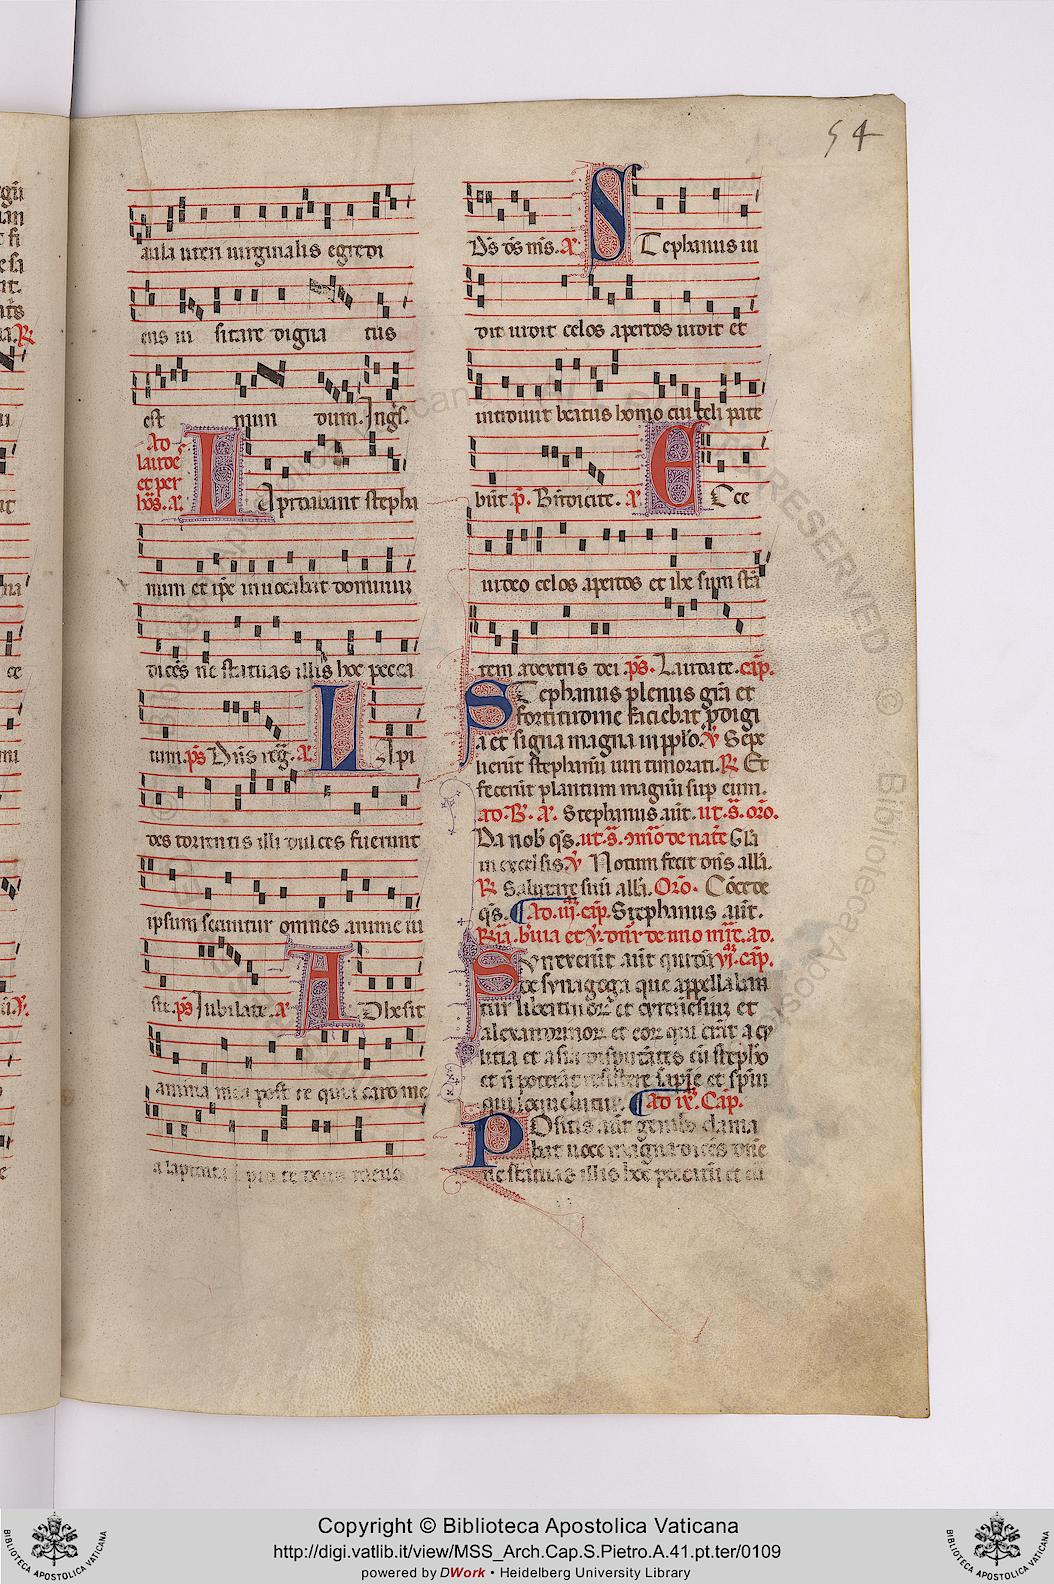 54
aula uteri uirginalis egredi
ens ui sitare digna tus
est mun dum. Ings.
Ad
laudes
et per
hōs. a. Lapidabant stepha
num et ip̄e inuocabat dominum
dicēs ne statuas illis hoc pecca
tum. p̄s Dn̄s reg̃. a. Lapi
des torrentis illi dulces fuerunt
ipsum secuntur omnes anime iu
ste. p̄s Iubilate. a. Adhesit
anima mea post te quia caro me
a lapidata ē pro te deus meus
Ds̄ ds̄ ms̄. a. Stephanus ui
dit uidit celos apertos uidit et
introiuit beatus homo cui celi pate
bāt. p̄. Bn̄dicite. a. Ecce
uideo celos apertos et ihm̄ sum stā
tem adextris dei. p̄s. Laudate. cap̄.
Stephanus plenus gr̄a et
fortitudine faciebat p̄digi
a et signa magna in pplo. ℣ Sepe
lierūt stephanū uiri timorati. ℟ Et
fecerūt planctum magnū sup eum.
ad. B. a. Stephanus aūt. ut. s̄. or̄o.
Da nob̄ qs̄. ut. s̄. de nat̄e Gl̄a
in excelsis. ℣ Notum fecit dn̄s all̄a.
℟ Salutare suū all̄a. Or̄o. Cōcede
qs̄. Ad. iii. cap̄. Stephanus aūt.
ad.
Surrexerūt aūt quidā vi. cap̄.
de synagoga que appellaban
tur libertinor̄ et cyrenēsiuz et
alexandrinor̄ et eor̄ qui erāt a cy
licia et asia disputātes cū stepho
et n̄ poterāt resistere sapīe et spūi
qui loquebatur. Ad ix. Cap̄.
Positis aūt genibꝰ clama
bat uoce magna dicēs dn̄e
ne statuas illis hoc peccatū et cū
Copyright © Biblioteca Apostolica Vaticana
http://digi.vatlib.it/view/MSS_Arch.Cap.S.Pietro.A.41.pt.ter/0109
powered by DWork • Heidelberg University Library